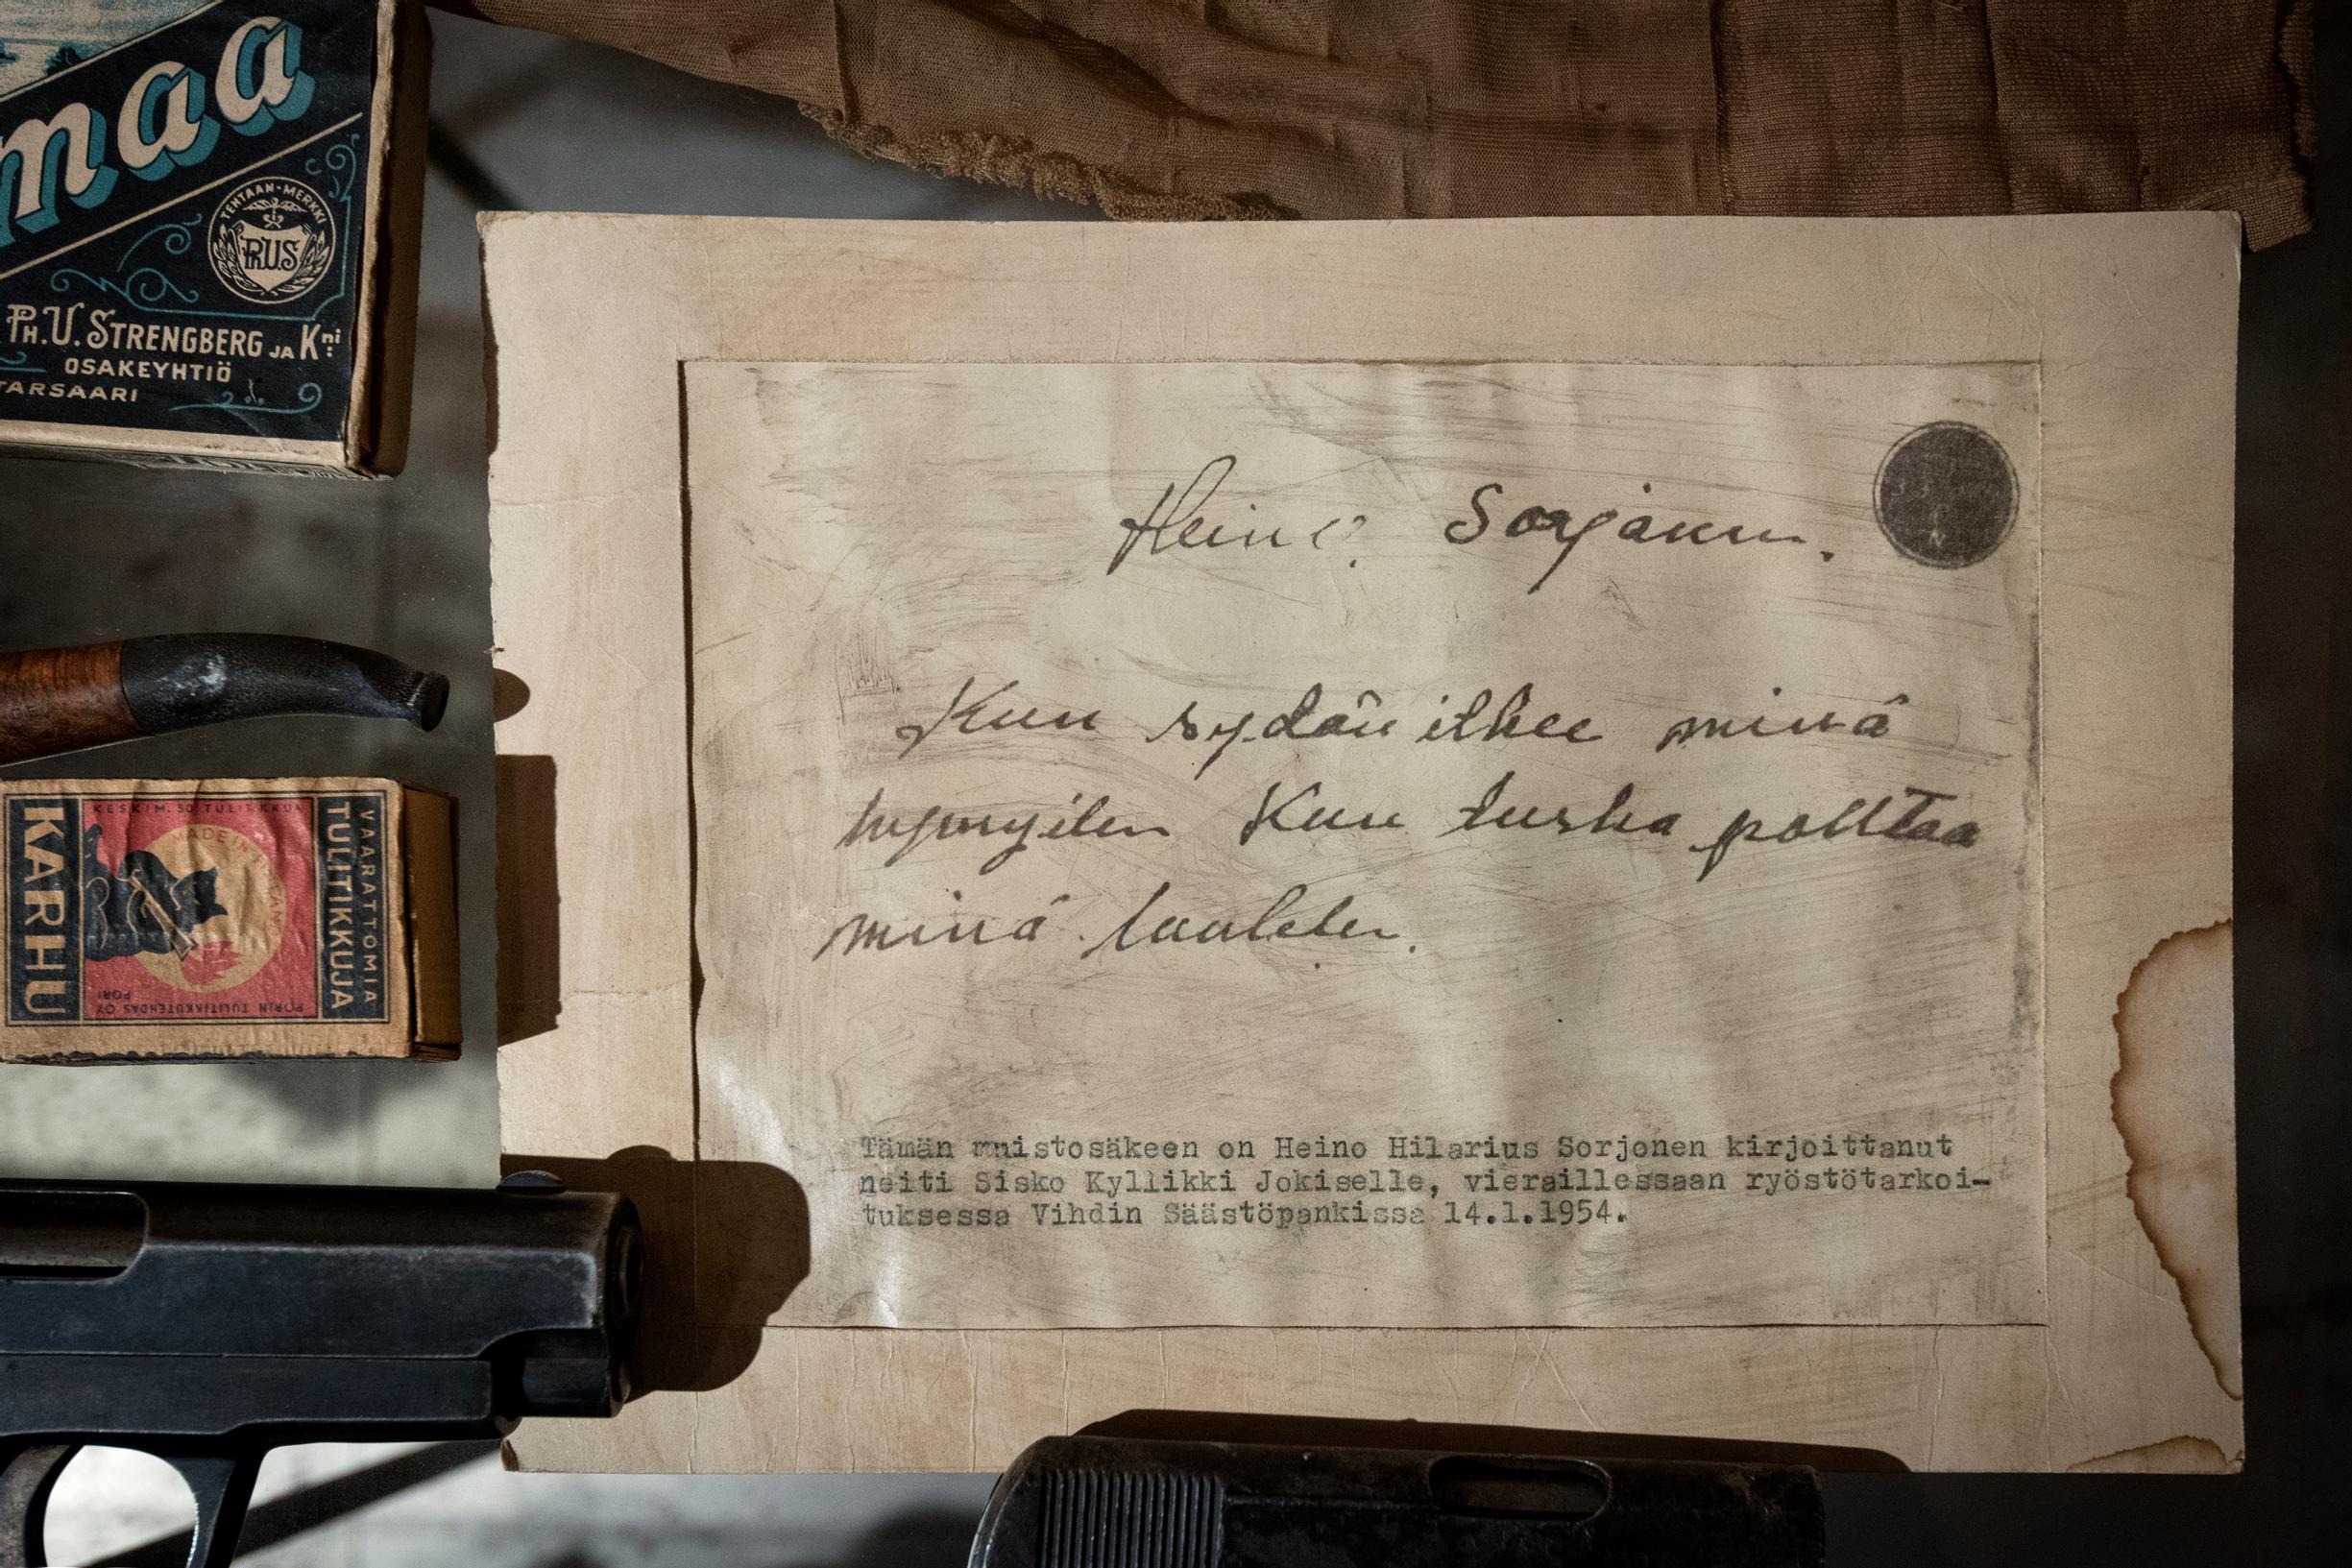 maa
TEHTAAN-MERKKI
PH.U.S
PH. U. STRENGBERG JA Kni:
OSAKEYHTIÖ
TARSAARI
Heino Sorjonen.
Kun sydän itkee minä
hymyilen Kun tuska polttaa
minä laulelen.
Tämän muistosäkeen on Heino Hilarius Sorjonen kirjoittanut
neiti Sisko Kyllikki Jokiselle, vieraillessaan ryöstötarkoi-
tuksessa Vihdin Säästöpankissa 14.1.1954.
KARHU
KESKIM. 50 TULITIKKUA
MADE IN FINLAND
PORIN TULITIKKUTEHDAS OY
PORI
TULITIKKUJA
VAARATTOMIA